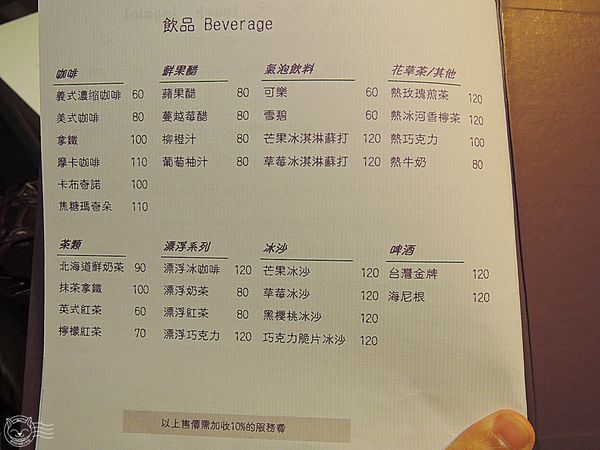 飲品 Beverage
咖啡
義式濃縮咖啡 60
美式咖啡 80
拿鐵 100
摩卡咖啡 110
卡布奇諾 100
焦糖瑪奇朵 110
鮮果醋
蘋果醋 80
蔓越莓醋 80
柳橙汁 80
葡萄柚汁 80
氣泡飲料
可樂 60
雪碧 60
芒果冰淇淋蘇打 120
草莓冰淇淋蘇打 120
花草茶/其他
熱玫瑰煎茶 120
熱冰河香檸茶 120
熱巧克力 100
熱牛奶 80
茶類
北海道鮮奶茶 90
抹茶拿鐵 100
英式紅茶 60
檸檬紅茶 70
漂浮系列
漂浮冰咖啡 120
漂浮奶茶 80
漂浮紅茶 80
漂浮巧克力 120
冰沙
芒果冰沙 120
草莓冰沙 120
黑櫻桃冰沙 120
巧克力脆片冰沙 120
啤酒
台灣金牌 120
海尼根 120
以上售價需加收10%的服務費